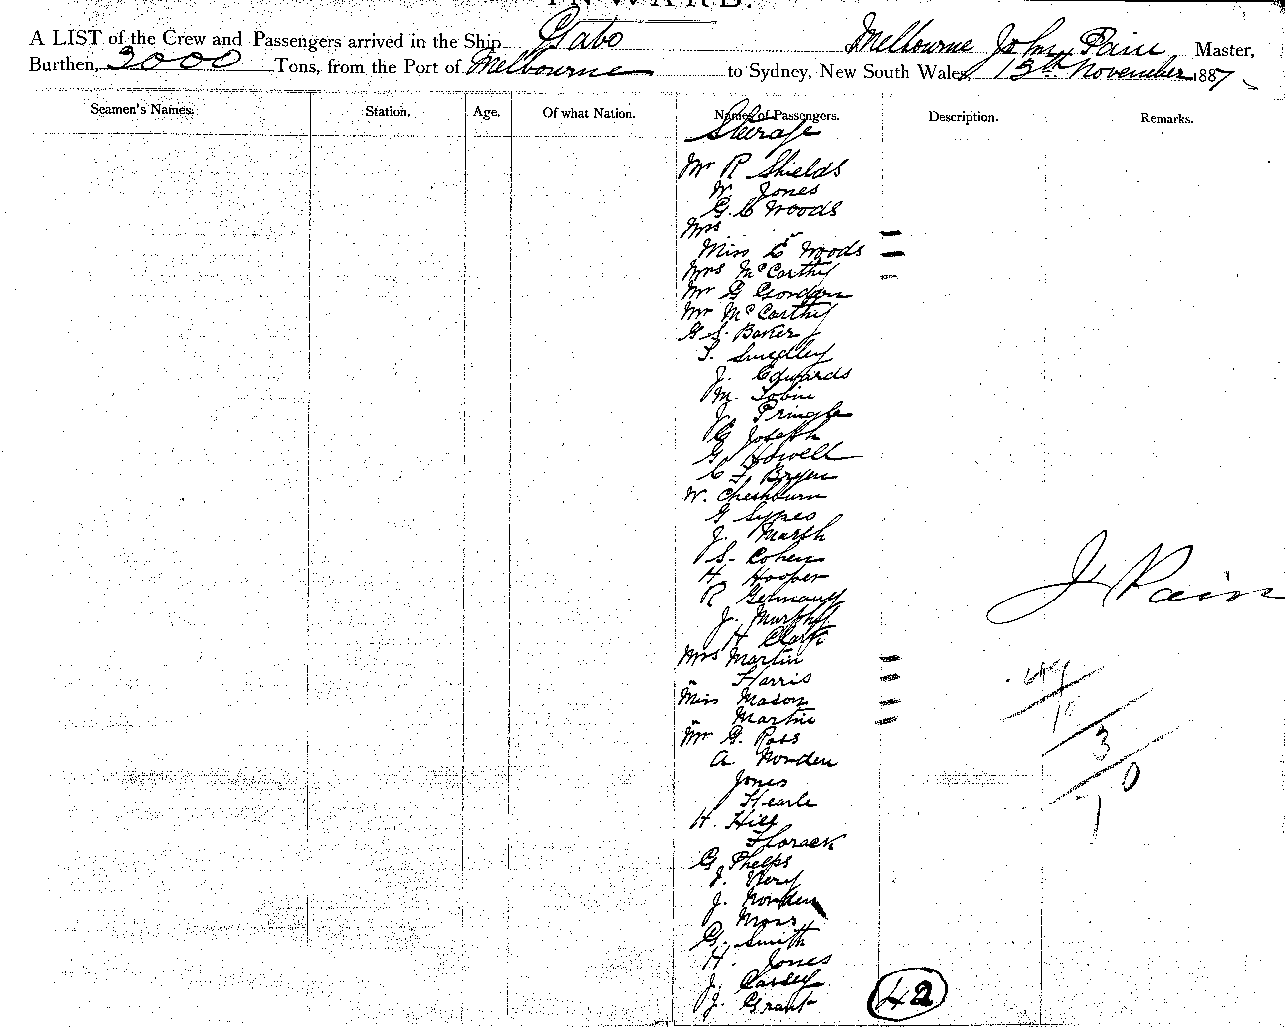 INWARD.
A LIST of the Crew and Passengers arrived in the Ship Gabo Melbourne John Pain Master,
Burthen, 3000 Tons, from the Port of Melbourne to Sydney, New South Wales, 13th November 1887
Seamen's Names. Station. Age. Of what Nation. Names of Passengers. Description. Remarks.
Steerage
Mr R Shields
W. Jones
G. C Woods
Mrs " =
Miss E Woods =
Mrs McCarthy =
Mr G Gordon
Mr McCarthy
G S. Baker
T. Smedley
J. Edwards
M. Tobin
J. Pringle
G Joseph
G Howell
C F. Bryen
W. Cheshburn
G Sypes
J. Marsh
S. Cohen
H. Hooper
R Germany
J. Murphy
H Clark
J. Pain
Mrs Martin =
" Harris =
Miss Mason =
" Martin =
Mr G. Ross
A Nowden
Jones
Hearle
H. Hill
Horack
G Phelps
J.
J. Nowden
Moss
G. Smith
H. Jones
J.
J. Grant
42
3
0
1